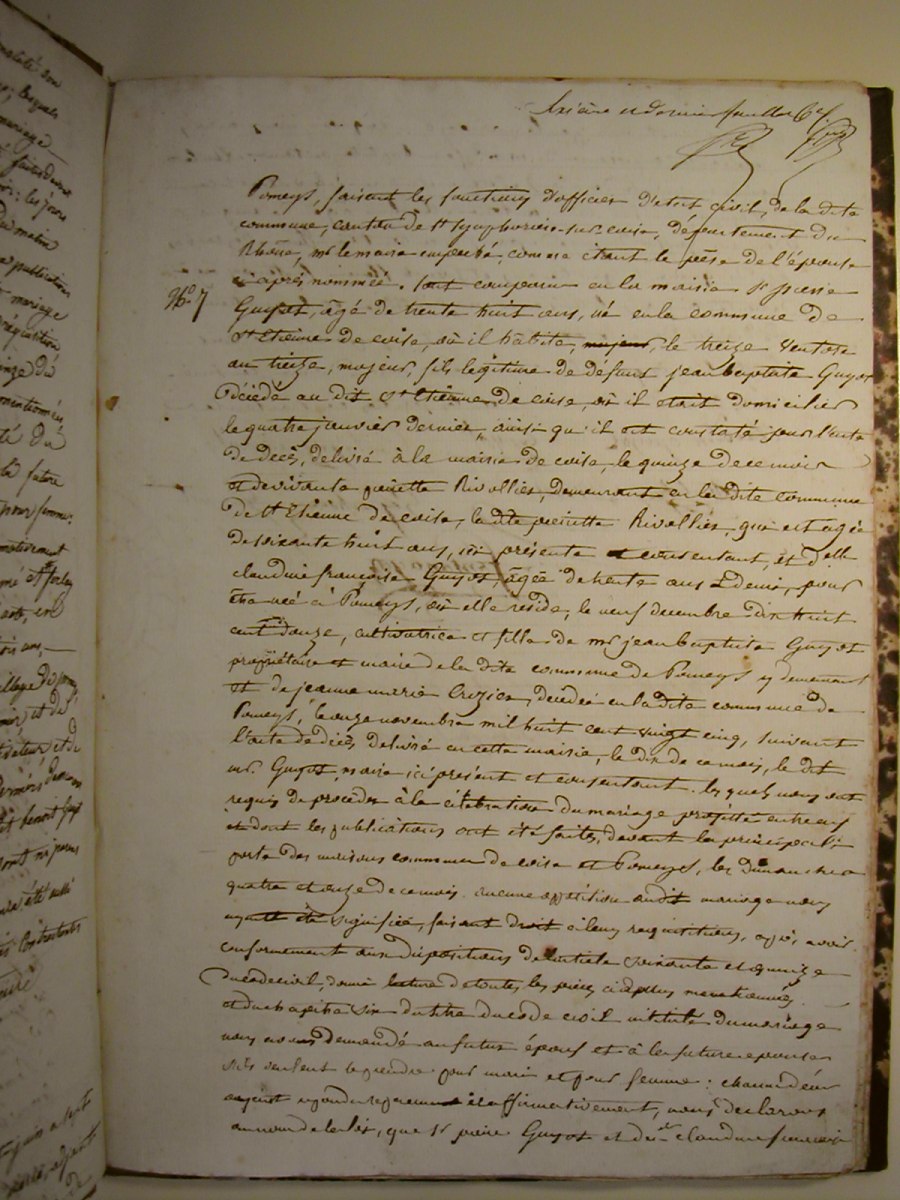 Sixième et dernier feuillet
Pomeys, faisant les fonctions d'officier d'état civil, de la dite
commune, canton de St Symphorien-sur-coise, département du
Rhône, mr le maire empeché, comme étant le père de l'épouse
ci après nommée. Sont comparu en la mairie Sr pierre
No. 7
Guyot, âgé de trente huit ans, né en la commune de
St Etienne de coise, où il habite, majeur, le treize Ventose
an treize, majeur, fils légitime de defunt jean baptiste Guyot
Décédé au dit St Etienne de coise, où il étoit domicilier
le quatre janvier dernier, ainsi qu'il est constaté par l'acte
de decès, delivré à la mairie de coise le quinze de ce mois
et de vivante pierrette Rivollier, demeurant en la dite commune
de St Etienne de coise, la dite pierrette Rivollier, que est agée
de soixante huit ans, ici présente et consentant, et Delle
claudine françoise Guyot, âgée de trente ans & demi, pour
être née à Pomeys, où elle reside, le neuf decembre dix huit
cent douze, cultivatrice et fille de mr jean baptiste Guyot
propriétaire et maire de la dite commune de Pomeys y demeurant
et de jeanne marie Crozier, decedée en la dite commune de
Pomeys, le onze novembre mil huit cent vingt cinq, suivant
l'acte de decès delivré en cette mairie, le dix de ce mois, le dit
mr. Guyot, maire ici présent et consentant. les quels nous ont
requis de procéder à la célébration du mariage projetté entre eux
et dont les publications ont été faites, devant la principale
porte des maisons commune de coise et Pomeys, les dimanches
quatre et onze de ce mois. aucune opposition audit mariage nous
ayant été signifiée, faisant droit à leurs requisitions, après avoir
conformement aux dispositions de l'article soixante et quinze
du code civil, donné lecture de toutes les pièces ci dessus mentionnées
et du chapitre six du titre du code civil intitulé du mariage
nous avons demandé au futur époux et à la future epouse
s'ils veulent se prendre pour mari et pour femme: chacun d'eux
ayant repondu separement et affirmativement, nous declarons
au nom de la loi, que Sr pierre Guyot et dlle claudine françoise